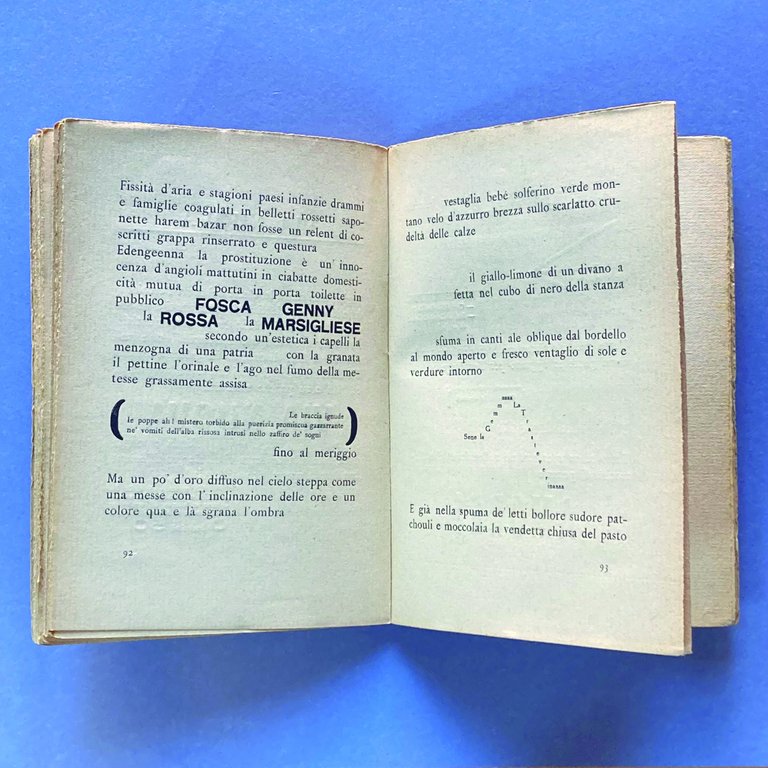 Fissità d'aria e stagioni paesi infanzie drammi
e famiglie coagulati in belletti rossetti sapo-
nette harem bazar non fosse un relent di co-
scritti grappa rinserrato e questura
Edengeenna la prostituzione è un' inno-
cenza d'angioli mattutini in ciabatte domesti-
cità mutua di porta in porta toilette in
pubblico FOSCA GENNY
la ROSSA la MARSIGLIESE
secondo un'estetica i capelli la
menzogna di una patria con la granata
il pettine l'orinale e l'ago nel fumo della me-
tesse grassamente assisa
( Le braccia ignude
le poppe ah! mistero torbido alla puerizia promiscua gazzarrante
ne' vomiti dell'alba rissosa intrusi nello zaffiro de' sogni )
fino al meriggio
Ma un po' d'oro diffuso nel cielo steppa come
una messe con l'inclinazione delle ore e un
colore qua e là sgrana l'ombra
92
vestaglia bebé solferino verde mon-
tano velo d'azzurro brezza sullo scarlatto cru-
deltà delle calze
il giallo-limone di un divano a
fetta nel cubo di nero della stanza
sfuma in canti ale oblique dal bordello
al mondo aperto e fresco ventaglio di sole e
verdure intorno
Sene la Gemma
La Trasteverinaaaa
E già nella spuma de' letti bollore sudore pat-
chouli e moccolaia la vendetta chiusa del pasto
93